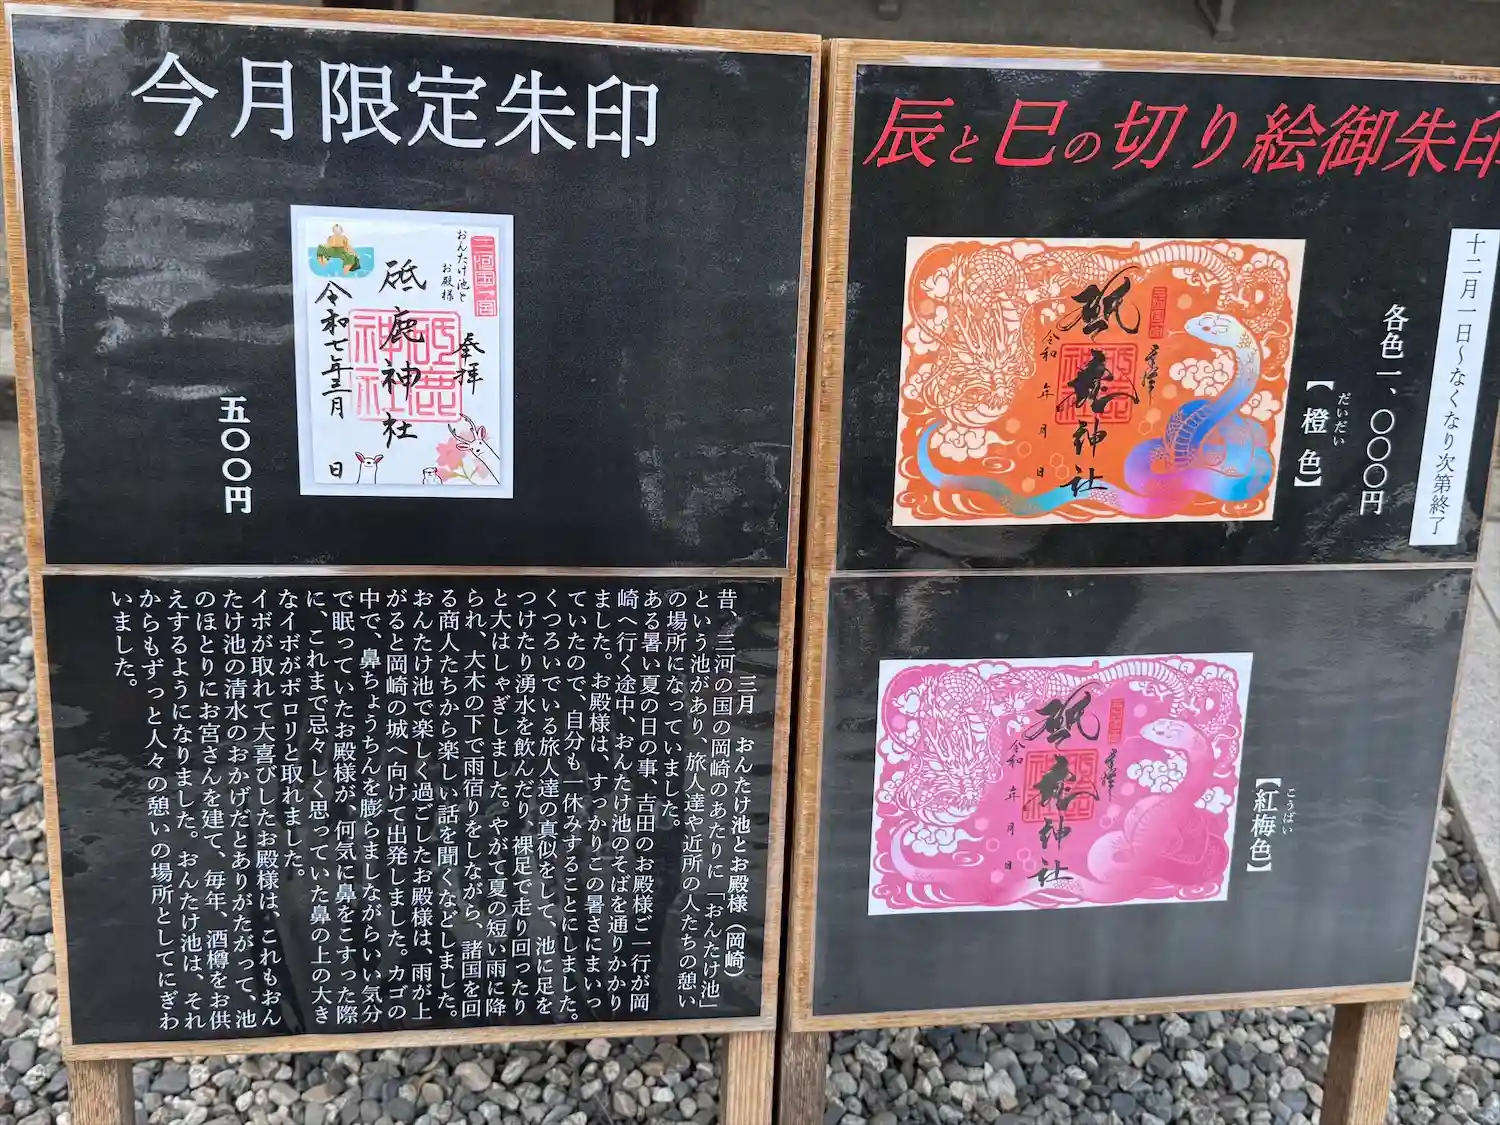 今月限定朱印
三河国一宮
おんたけ池と
お殿様
奉拝
砥鹿神社
砥鹿神社
令和七年三月　日
五〇〇円
三月　おんたけ池とお殿様（岡崎）
昔、三河の国の岡崎のあたりに「おんたけ池」
という池があり、旅人達や近所の人たちの憩い
の場所になっていました。
ある暑い夏の日の事、吉田のお殿様ご一行が岡
崎へ行く途中、おんたけ池のそばを通りかかり
ました。お殿様は、すっかりこの暑さにまいっ
ていたので、自分も一休みすることにしました。
くつろいでいる旅人達の真似をして、池に足を
つけたり湧水を飲んだり、裸足で走り回ったり
と大はしゃぎしました。やがて夏の短い雨に降
られ、大木の下で雨宿りをしながら、諸国を回
る商人たちから楽しい話を聞くなどしました。
おんたけ池で楽しく過ごしたお殿様は、雨が上
がると岡崎の城へ向けて出発しました。カゴの
中で、鼻ちょうちんを膨らましながらいい気分
で眠っていたお殿様が、何気に鼻をこすった際
に、これまで忌々しく思っていた鼻の上の大き
なイボがポロリと取れました。
イボが取れて大喜びしたお殿様は、これもおん
たけ池の清水のおかげだとありがたがって、池
のほとりにお宮さんを建て、毎年、酒樽をお供
えするようになりました。おんたけ池は、それ
からもずっと人々の憩いの場所としてにぎわ
いました。
辰と巳の切り絵御朱印
十二月一日～なくなり次第終了
各色一、〇〇〇円
【橙色】
だいだい
三河国一宮
奉拝
砥鹿神社
砥鹿神社
令和　年　月　日
【紅梅色】
こうばい
奉拝
砥鹿神社
砥鹿神社
令和　年　月　日